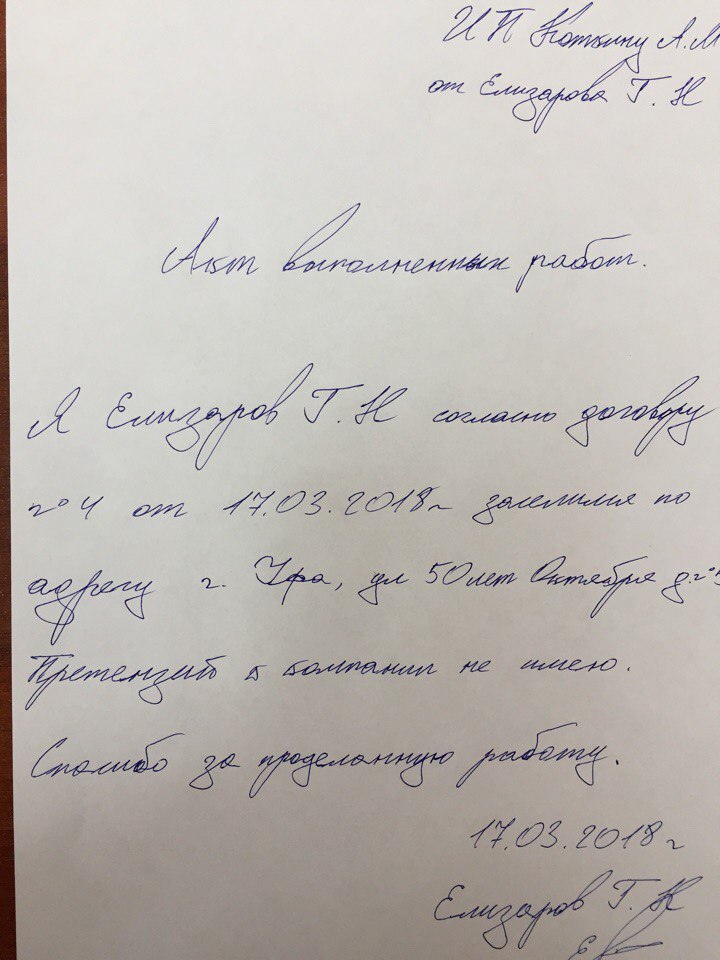 ИП Коткину А.М
от Елизарова Г.Н
Акт выполненных работ.
Я Елизаров Г.Н согласно договору
№4 от 17.03.2018г заселился по
адресу г. Уфа, ул 50 лет Октября д.№
Претензий к компании не имею.
Спасибо за проделанную работу.
17.03.2018г
Елизаров Г.Н